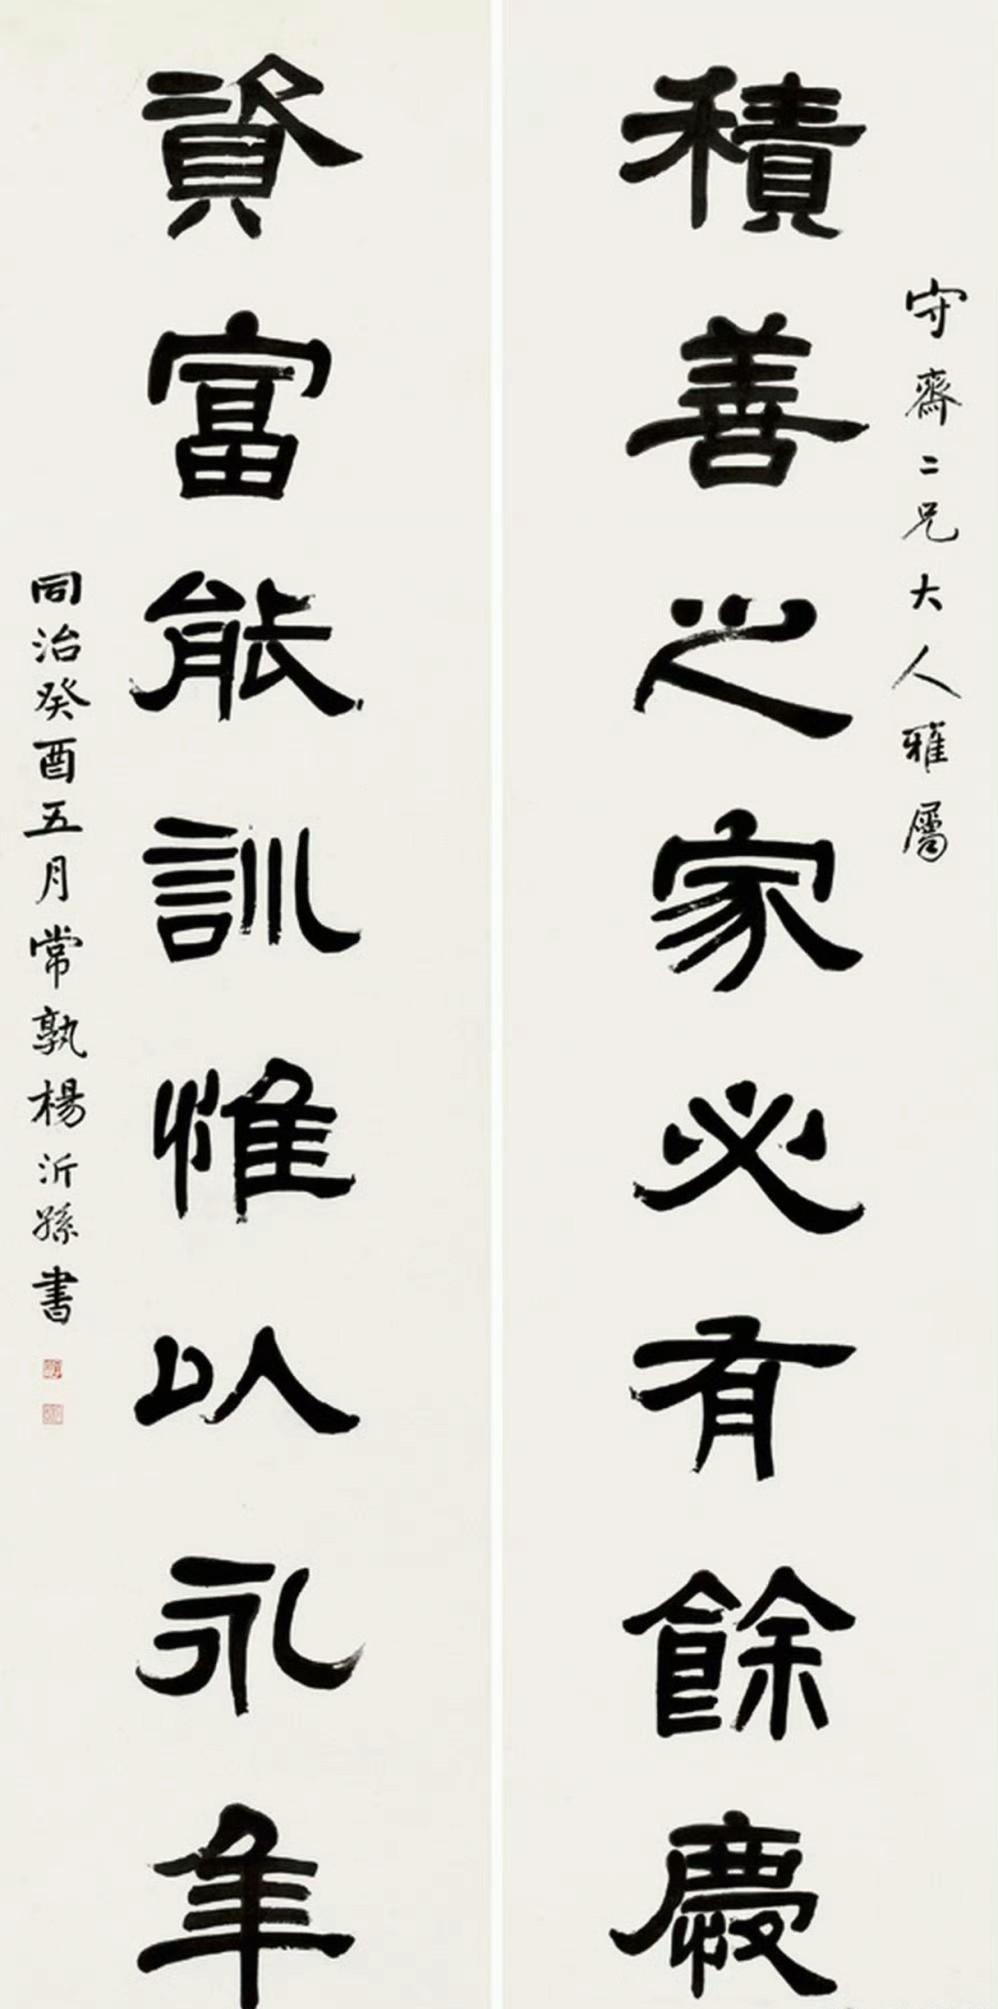 守齋二兄大人雅屬
積善之家必有餘慶
資富能訓惟以永年
同治癸酉五月常孰楊沂孫書